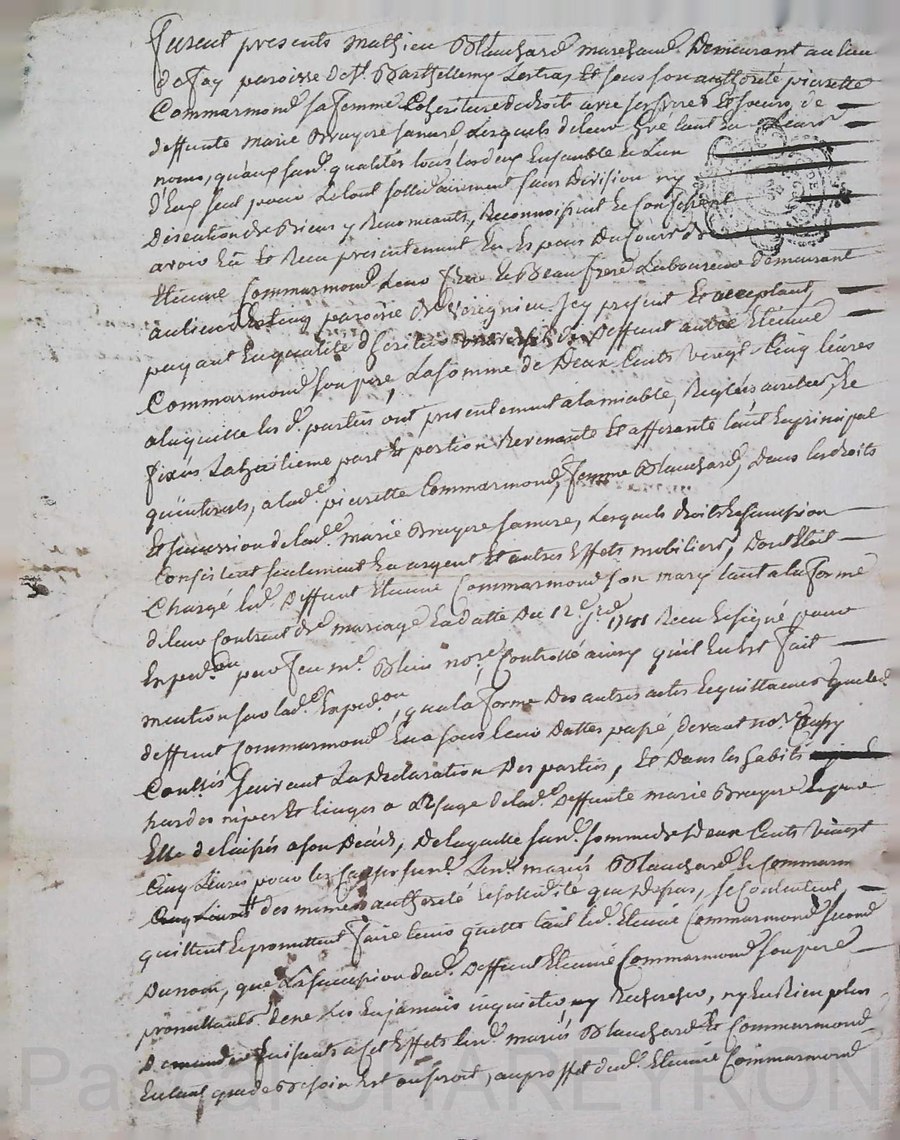 furent presents Mathieu Blanchard marchand Demeurant au lieu
De fay paroisse de St. Barthellemy Lestra, Et sous son authorité pierrette
Commarmond sa femme Coheritiere de droits avec ses freres Et soeurs, de
deffunte marie Bruyere sa mere Lesquels de leur Gré tant En Leurs
noms, qu'aux susd. qualités tous les deux Ensemble Et L'un
d'Eux seul pour Le tout sollidairement sans Division ny
Discution de Biens y Renonceants, Reconnoissent Et Confessent
avoir Eû Et Receu presentement En Especes Du Cours de
Etienne Commarmond Leur frere Et Beaufrere Laboureur Demeurant
au lieu de paroisse de Virignieu Jcy present Et acceptant,
payant En qualité d'heritier de Deffunt autre Etienne
Commarmond son pere, La somme de Deux Cents vingt Cinq livres
a laquelle les d. parties ont presentement a lamiable, Reglés arretée, Et
fixée La huitieme part Et portion Revenante Et afferante tant En principal
qu'interets, a lad. pierrette Commarmond, femme Blanchard, Dans les droits
Et succession de lad. marie Bruyere sa mere, Lesquels droits Et succession
Consistent seulement En argent Et autres Effets mobiliers, Dont Etoit
Chargé led. Deffunt Etienne Commarmond son mary tant a la forme
de leur Contract de mariage En datte Du 12e. 1741 Receu Et signé pour
Exped.on par feu me. Blein nore. Controllé ainsy qu'il En Est fait
mention sur lad. Exped.on, qu'a la forme Des autres actes Et quittances que led.
deffunt Commarmond En a sous leurs Dattes passé, devant nore.
suivant La Declaration Des parties, Et Dans les habits
hardes nipes Et linges a L'usage de lad. Deffunte marie Bruyere
Elle delaissés a son Décés, De laquelle susd. somme de Deux Cents vingt
Cinq Livres pour les susd. Les d. mariés Blanchard Et Commarm
des memes authorité Et solidité que Dessus, se Contentent,
quittent Et promettent faire tenir quitte tant led. Etienne Commarmond second
Du nom, que La succession dud. Deffunt Etienne Commarmond son pere
promettants de ne Les En jamais inquietter, ny Rechercher, ny En Rien plus
Demander faisants a cet Effet lesd. mariés Blanchard Et Commarmond
En tant que de Besoin Est ou seroit, au proffit dud. Etienne Commarmond
Pascal CHAREYRON